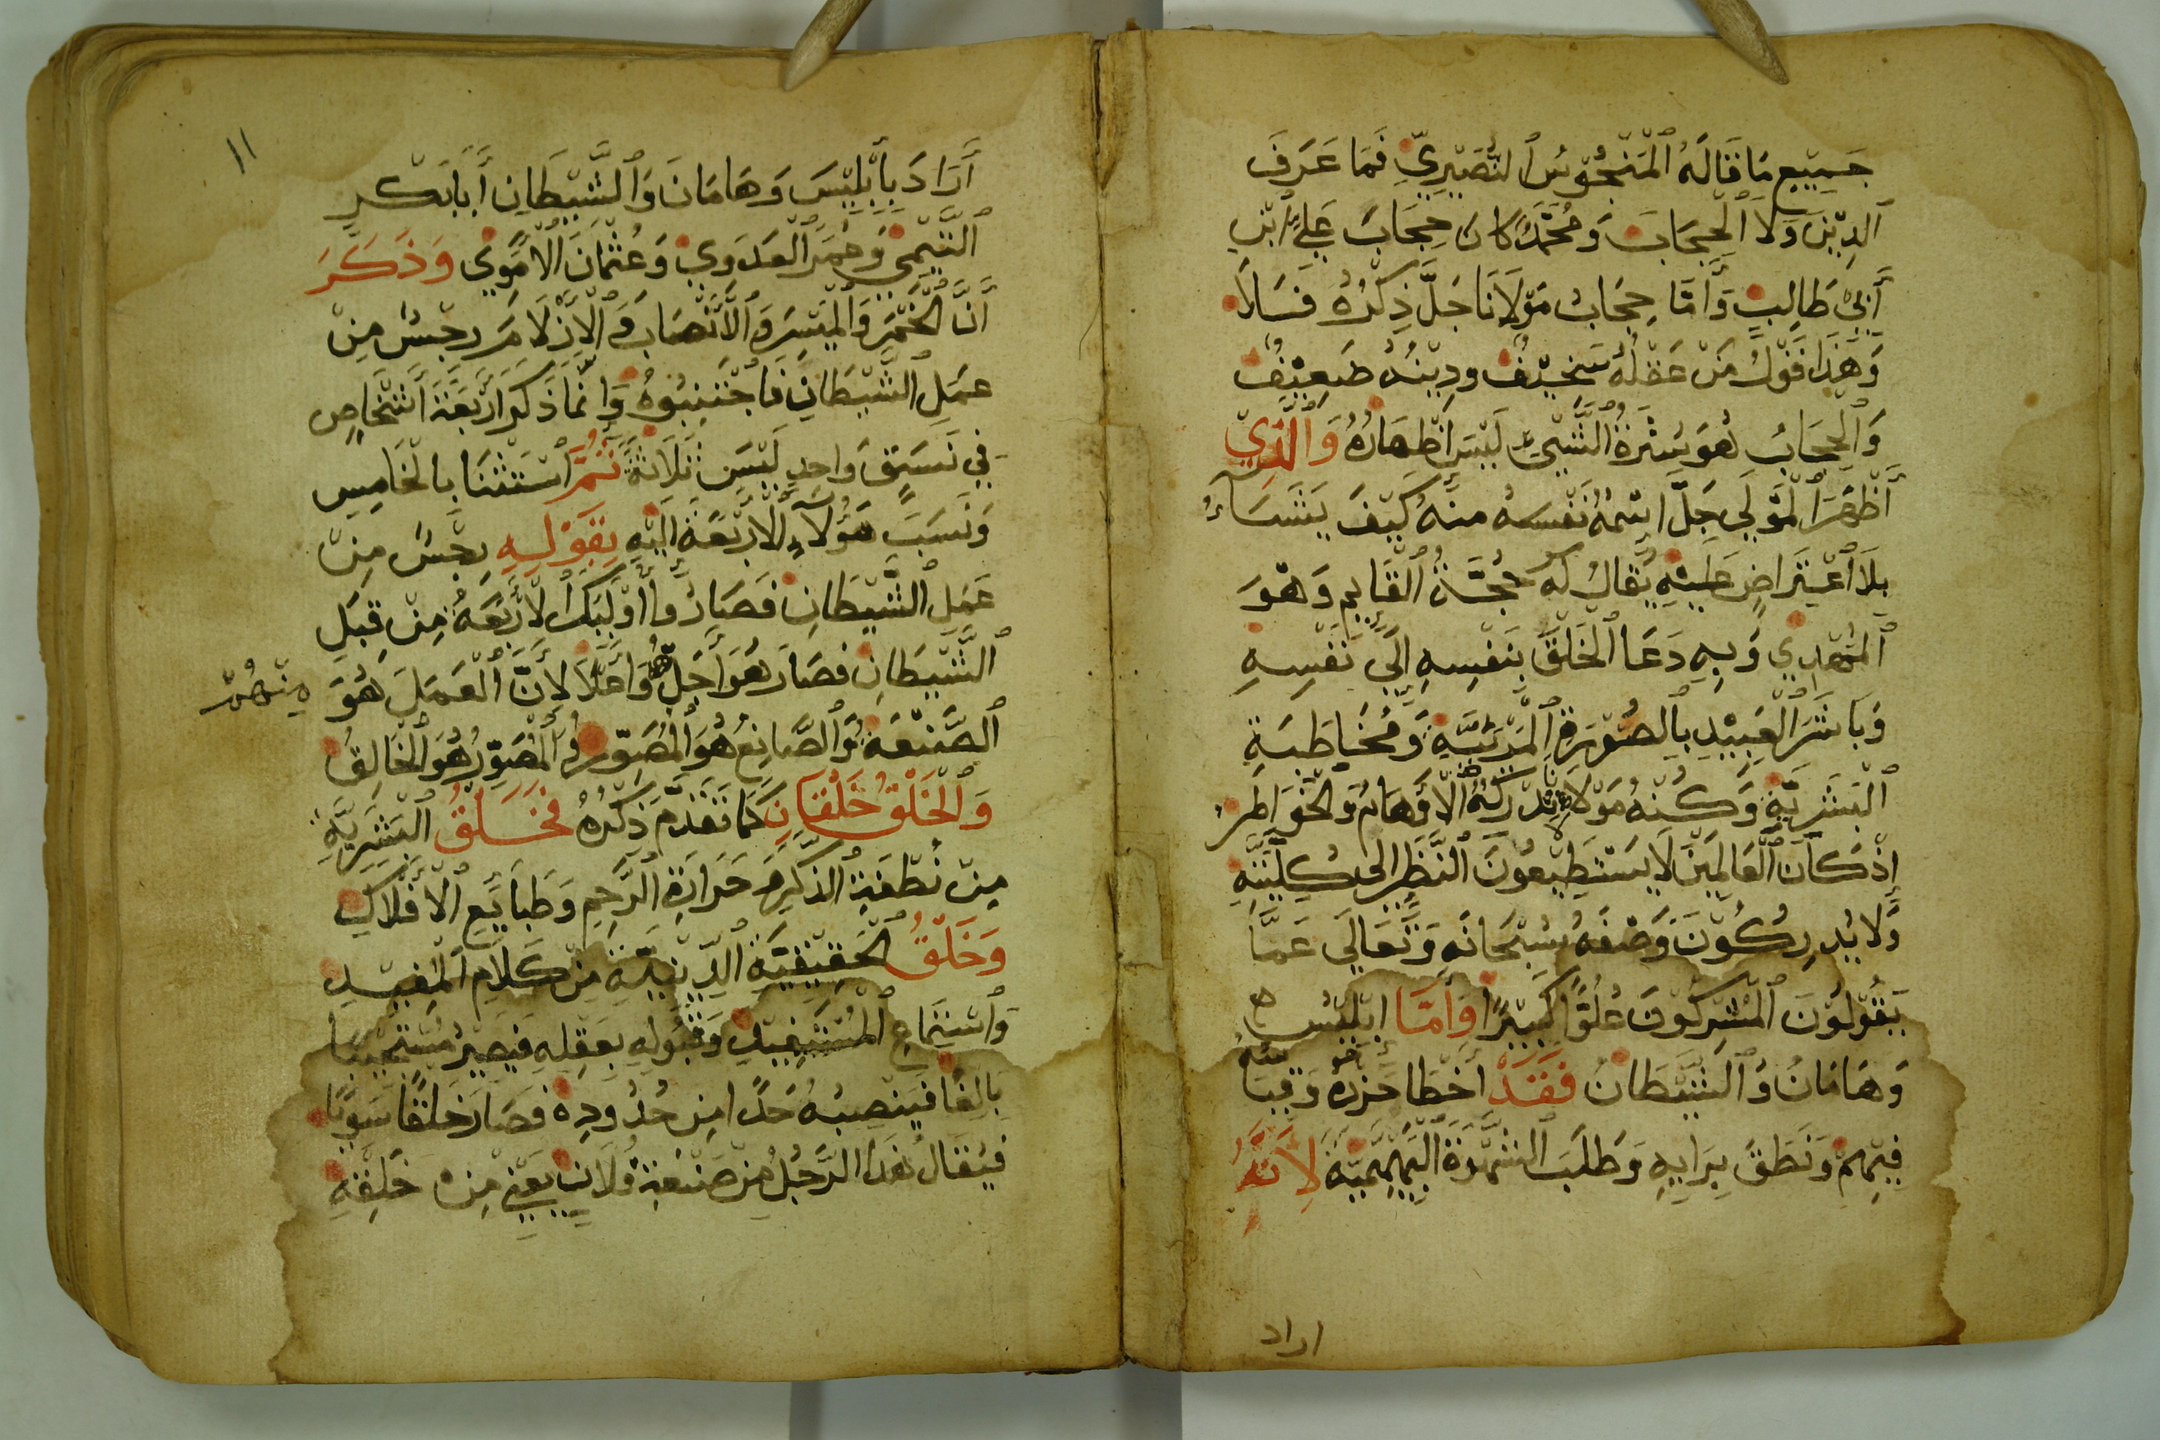 جَمِيْعِ مَا قَالَهُ ٱلْمَنْحُوْسُ ٱلنُّصَيْرِيّ فَمَا عَرَفَ
ٱلدِّيْنَ وَلَا ٱلْحِجَابَ وَمُحَمَّدً كَانَ حِجَابَ عَلِيٍّ ٱبْنِ
أَبِيْ طَالِبٍ وَأَمَّا حِجَابُ مَوْلَانَا جَلَّ ذِكْرُهُ فَسَالَا
وَهَذَا قَوْلُ مَنْ عَقْلُهُ سَخِيْفٌ وَدِيْنُهُ ضَعِيْفٌ
وَٱلْحِجَابُ هُوَ سُتْرَةُ ٱلشَّيْءِ لَيْسَ إِظْهَارُهُ وَٱلَّذِيْ
أَظْهَرَ ٱلْمَوْلَى جَلَّ ٱسْمُهُ نَفْسَهُ مِنْهُ كَيْفَ يَشَاءُ
بِلَا ٱعْتِرَاضٍ عَلَيْهِ يُقَالُ لَهُ حُجَّةُ ٱلْقَايِمِ وَهُوَ
ٱلْمَهْدِي وَبِهِ دَعَا ٱلْخَلْقَ بِنَفْسِهِ إِلَى نَفْسِهِ
وَبَاشَرَ ٱلْعَبِيْدِ بِٱلصُّوْرَةِ ٱلْمَرْئِيَّةِ وَمُخَاطَبَةِ
ٱلْبَشَرِيَّةِ وَكُنْهُ مَوْلَانَا لَا تُدْرِكُهُ ٱلْأَوْهَامُ وَٱلْخَوَاطِرُ
إِذْ كَانَ ٱلْعَالَمِيْنَ لَا يَسْتَطِيْعُوْنَ ٱلنَّظَرَ إِلَى كُلِّيَّتِهِ
وَلَا يُدْرِكُوْنَ وَصْفَهُ سُبْحَانَهُ وَتَعَالَى عَمَّا
يَقُوْلُوْنَ ٱلْمُشْرِكُوْنَ عُلُوًّا كَبِيْرًا وَأَمَّا إِبْلِيْسُ
وَهَامَانُ وَٱلشَّيْطَانُ فَقَدْ أَخْطَا حَزْرُهُ وَقِيَاسُهُ
فِيْهِمْ وَنَطَقَ بِرَايِهِ وَطَلَبَ ٱلشَّهْوَةَ ٱلْبَهِيْمِيَّةَ لِأَنَّهُ
اراد
١١
أَرَادَ بِإِبْلِيْسَ وَهَامَانَ وَٱلشَّيْطَانِ أَبَا بَكْرٍ
ٱلتَّيْمِي وَعُمَرَ ٱلْعَدَوِي وَعُثْمَانَ ٱلْأُمَوِي وَذَكَرَ
أَنَّ ٱلْخَمْرَ وَٱلْمَيْسَرَ وَٱلْأَنْصَابَ وَٱلْأَزْلَامَ رِجْسٌ مِنْ
عَمَلِ ٱلشَّيْطَانِ فَٱجْتَنِبُوْهُ وَإِنَّمَا ذَكَرَ أَرْبَعَةَ أَشْخَاصٍ
فِي نَسَقٍ وَاحِدٍ لَيْسَ ثَلَاثَةً ثُمَّ ٱسْتَثْنَا بِالْخَامِسِ
وَنَسَبَ هَؤُلَاءِ ٱلْأَرْبَعَةِ إِلَيْهِ بِقَوْلِهِ رِجْسٌ مِنْ
عَمَلِ ٱلشَّيْطَانِ فَصَارُوا أُوْلَئِكَ ٱلْأَرْبَعَةُ مِنْ قِبَلِ
ٱلشَّيْطَانِ فَصَارَ هُوَ أَجَلَّ وَأَعْلَا لِأَنَّ ٱلْعَمَلَ هُوَ
مِنْهُمْ
ٱلصَّنْعَةُ وَٱلصَّانِعُ هُوَ ٱلْمُصَوِّرُ وَٱلْمُصَوِّرُ هُوَ ٱلْخَالِقُ
وَٱلْخَلْقُ خَلْقَانِ كَمَا تَقَدَّمَ ذِكْرُهُ فَخَلْقُ ٱلْبَشَرِيَّةِ
مِنْ نُطْفَةِ ٱلذَّكَرِ وَحَرَارَةِ ٱلرَّحِمِ وَطَبَايِعِ ٱلْأَفْلَاكِ
وَخَلْقُ ٱلْحَقِيْقِيَّةِ ٱلدِّيْنِيَّةِ مِنْ كَلَامِ ٱلْمُفِيْدِ
وَٱسْتِمَاعِ ٱلْمُسْتَفِيْدِ وَقُبُوْلِهِ بِعَقْلِهِ فَيَصِيْرُ مُسْتَجِيْبًا
بَالِغًا فَيَنْصِبُهُ حَدًّا مِنْ حُدُوْدِهِ فَصَارَ خَلْقًا سَوِيًّا
فَيُقَالُ هَذَا ٱلرَّجُلُ مِنْ صَنْعَةِ فُلَانٍ يَعْنِي مِنْ خَلْقِهِ